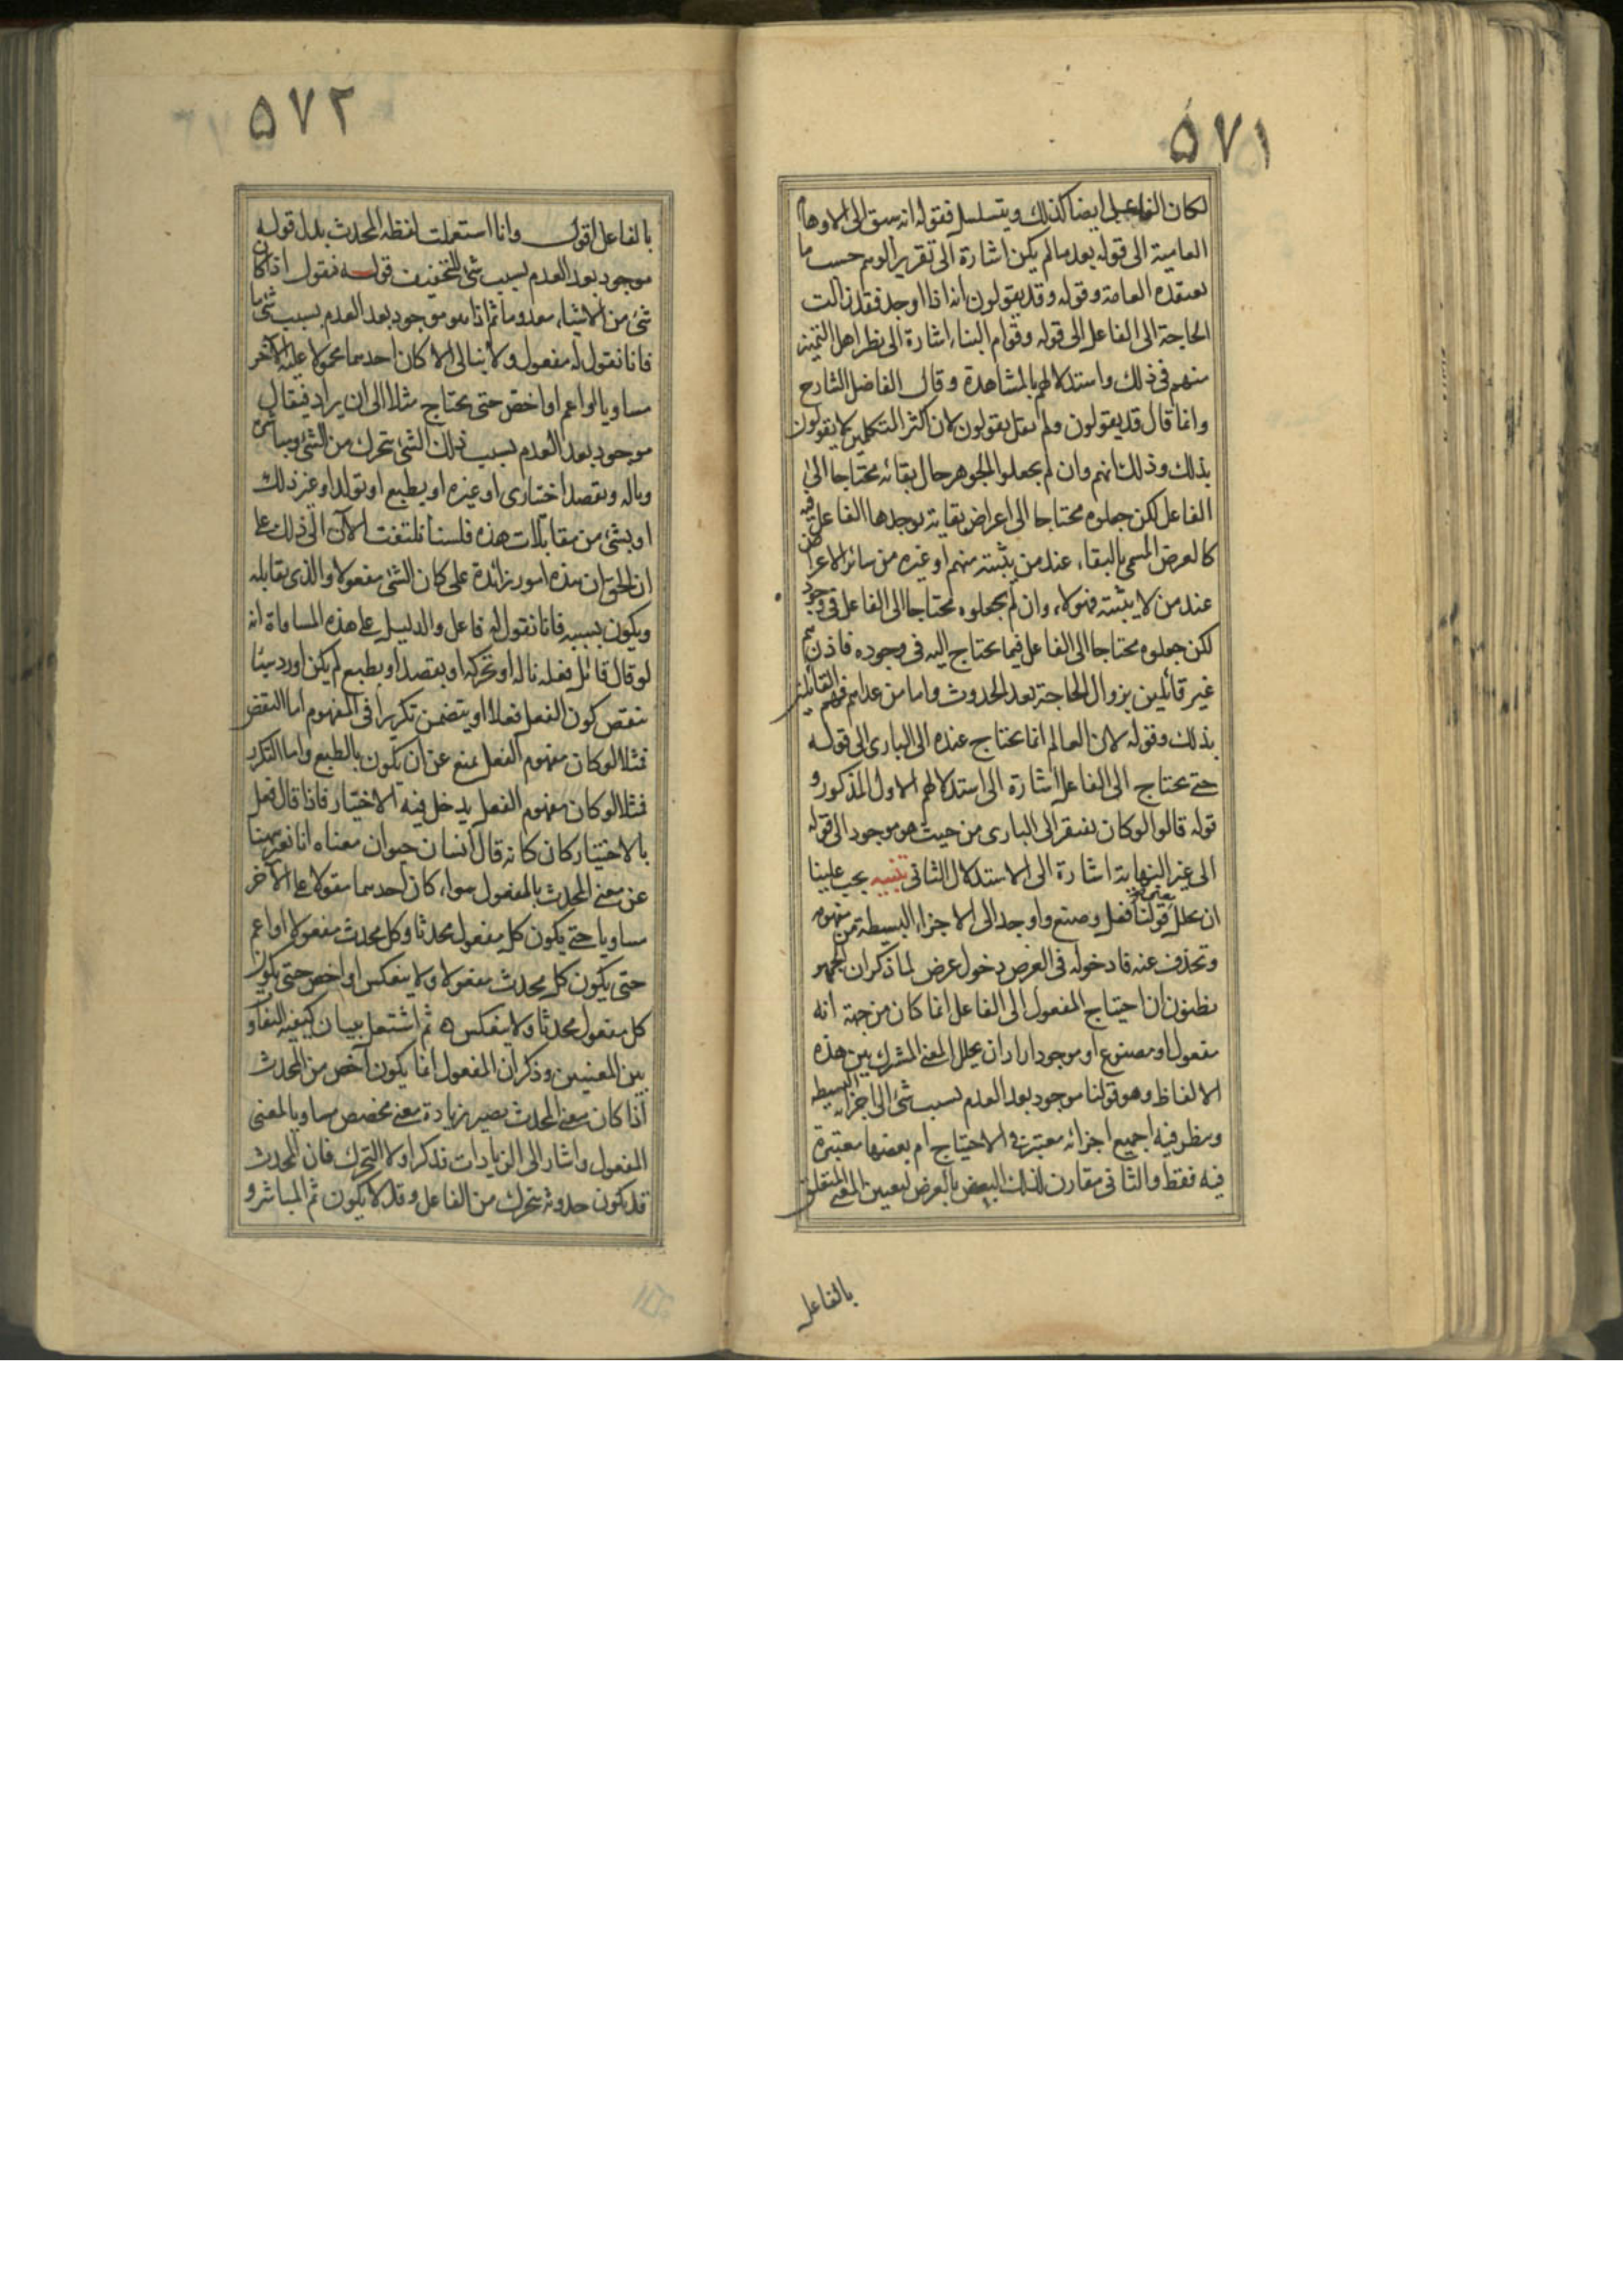 ۵۷۱
لكان الفاعل ايضا كذلك ويتسلسل فقوله انه سبق الى الاوهام
العامية الى قوله بعد ما لم يكن اشارة الى تقرير الوهم حسب ما
يعتقده العامة وقوله وقد يقولون انه اذا اوجد فقد زالت
الحاجة الى الفاعل الى قوله وقوام البناء اشارة الى نظر اهل التميز
منهم فى ذلك واستدلالهم بالمشاهدة وقال الفاضل الشارح
وانما قال قد يقولون ولم يقل يقولون لان اكثر المتكلمين لا يقولون
بذلك وذلك انهم وان لم يجعلوا الجوهر حال بقائه محتاجا الى
الفاعل لكن جعلوه محتاجا الى اعراض بقاية يوجدها الفاعل فيه
كالعرض المسمى بالبقاء عند من يثبته منهم او غيره من سائر الاعراض
عند من لا يثبته فهولاء وان لم يجعلوه محتاجا الى الفاعل فى وجوده
لكن جعلوه محتاجا الى الفاعل فيما يحتاج اليه فى وجوده فاذن هم
غير قائلين بزوال الحاجة بعد الحدوث واما من عداهم فهم القائلين
بذلك وقوله لان العالم انما يحتاج عنده الى البارى الى قوله
حتى يحتاج الى الفاعل اشارة الى استدلالهم الاول المذكور و
قوله قالوا لو كان يفتقر الى البارى من حيث هو موجود الى قوله
الى غير النهاية اشارة الى الاستدلال الثانى تنبيه يجب علينا
ان نحلل قولنا فعل وصنع واوجد الى الاجزاء البسيطة من مفهومه
وتحذف عنه ما دخوله فى الغرض دخول عرض لما ذكر ان الجمهور
يظنون ان احتياج المفعول الى الفاعل انما كان من جهة انه
مفعول او مصنوع او موجود اراد ان يحلل المعنى المشترك بين هذه
الالفاظ وهو قولنا موجود بعد العدم بسبب شئ الى اجزائه البسيطه
وينظر فيه اجميع اجزائه معتبرة فى الاحتياج ام بعضها معتبرة
فيه فقط والثانى مقارن لذلك البعض بالعرض ليعين المعنى المتعلق
بالفاعل
۵۷۲
بالفاعل اقول وانا استعملت لفظه المحدث بدل قوله
موجود بعد العدم بسبب شئ للتخفيف قوله فنقول اذا كان
شئ من الاشياء معدوما ثم اذا هو موجود بعد العدم بسبب شئ ما
فانا نقول له مفعول ولا نبالى الا كان احدهما محمولا عليه الآخر
مساويا او اعم او اخص حتى يحتاج مثلا الى ان يراد فيقال
موجود بعد العدم بسبب ذلك الشئ بتحرك من الشئ ومباشرة
وبالة وبقصد اختيارى او غيره او بطبع او تولد او غير ذلك
او بشئ من مقابلات هذه فلسنا نلتفت الآن الى ذلك على
ان الحق ان هذه امور زائدة على كان الشئ مفعولا والذى يقابله
ويكون بسببه فانا نقول له فاعل والدليل على هذه المساواة انه
لو قال قائل فعله بالة او بحركة او بقصد او بطبع لم يكن اورد شيئا
ينقض كون الفعل فعلا او يتضمن تكريرا فى المفهوم اما النقض
فمثلا لو كان مفهوم الفعل يمنع عن ان يكون بالطبع واما التكرر
فمثلا لو كان مفهوم الفعل يدخل فيه الاختيار فاذا قال فعل
بالاختيار كان كانه قال انسان حيوان معناه انا نعبر ههنا
عن معنى المحدث بالمفعول سواء كان احدهما مقولا على الآخر
مساويا حتى يكون كل مفعول محدثا وكل محدث مفعولا او اعم
حتى يكون كل محدث مفعولا ولا ينعكس او اخص حتى يكون
كل مفعول محدثا ولا ينعكس ثم اشتغل ببيان كيفية التفاوت
بين المعنيين وذكر ان المفعول انما يكون اخص من المحدث
اذا كان معنى المحدث يصير بزيادة معنى مخصص مساويا لمعنى
المفعول واشار الى الزيادات فذكر اولا التحرك فان المحدث
قد يكون حدوثه بتحرك من الفاعل وقد لا يكون ثم المباشر و